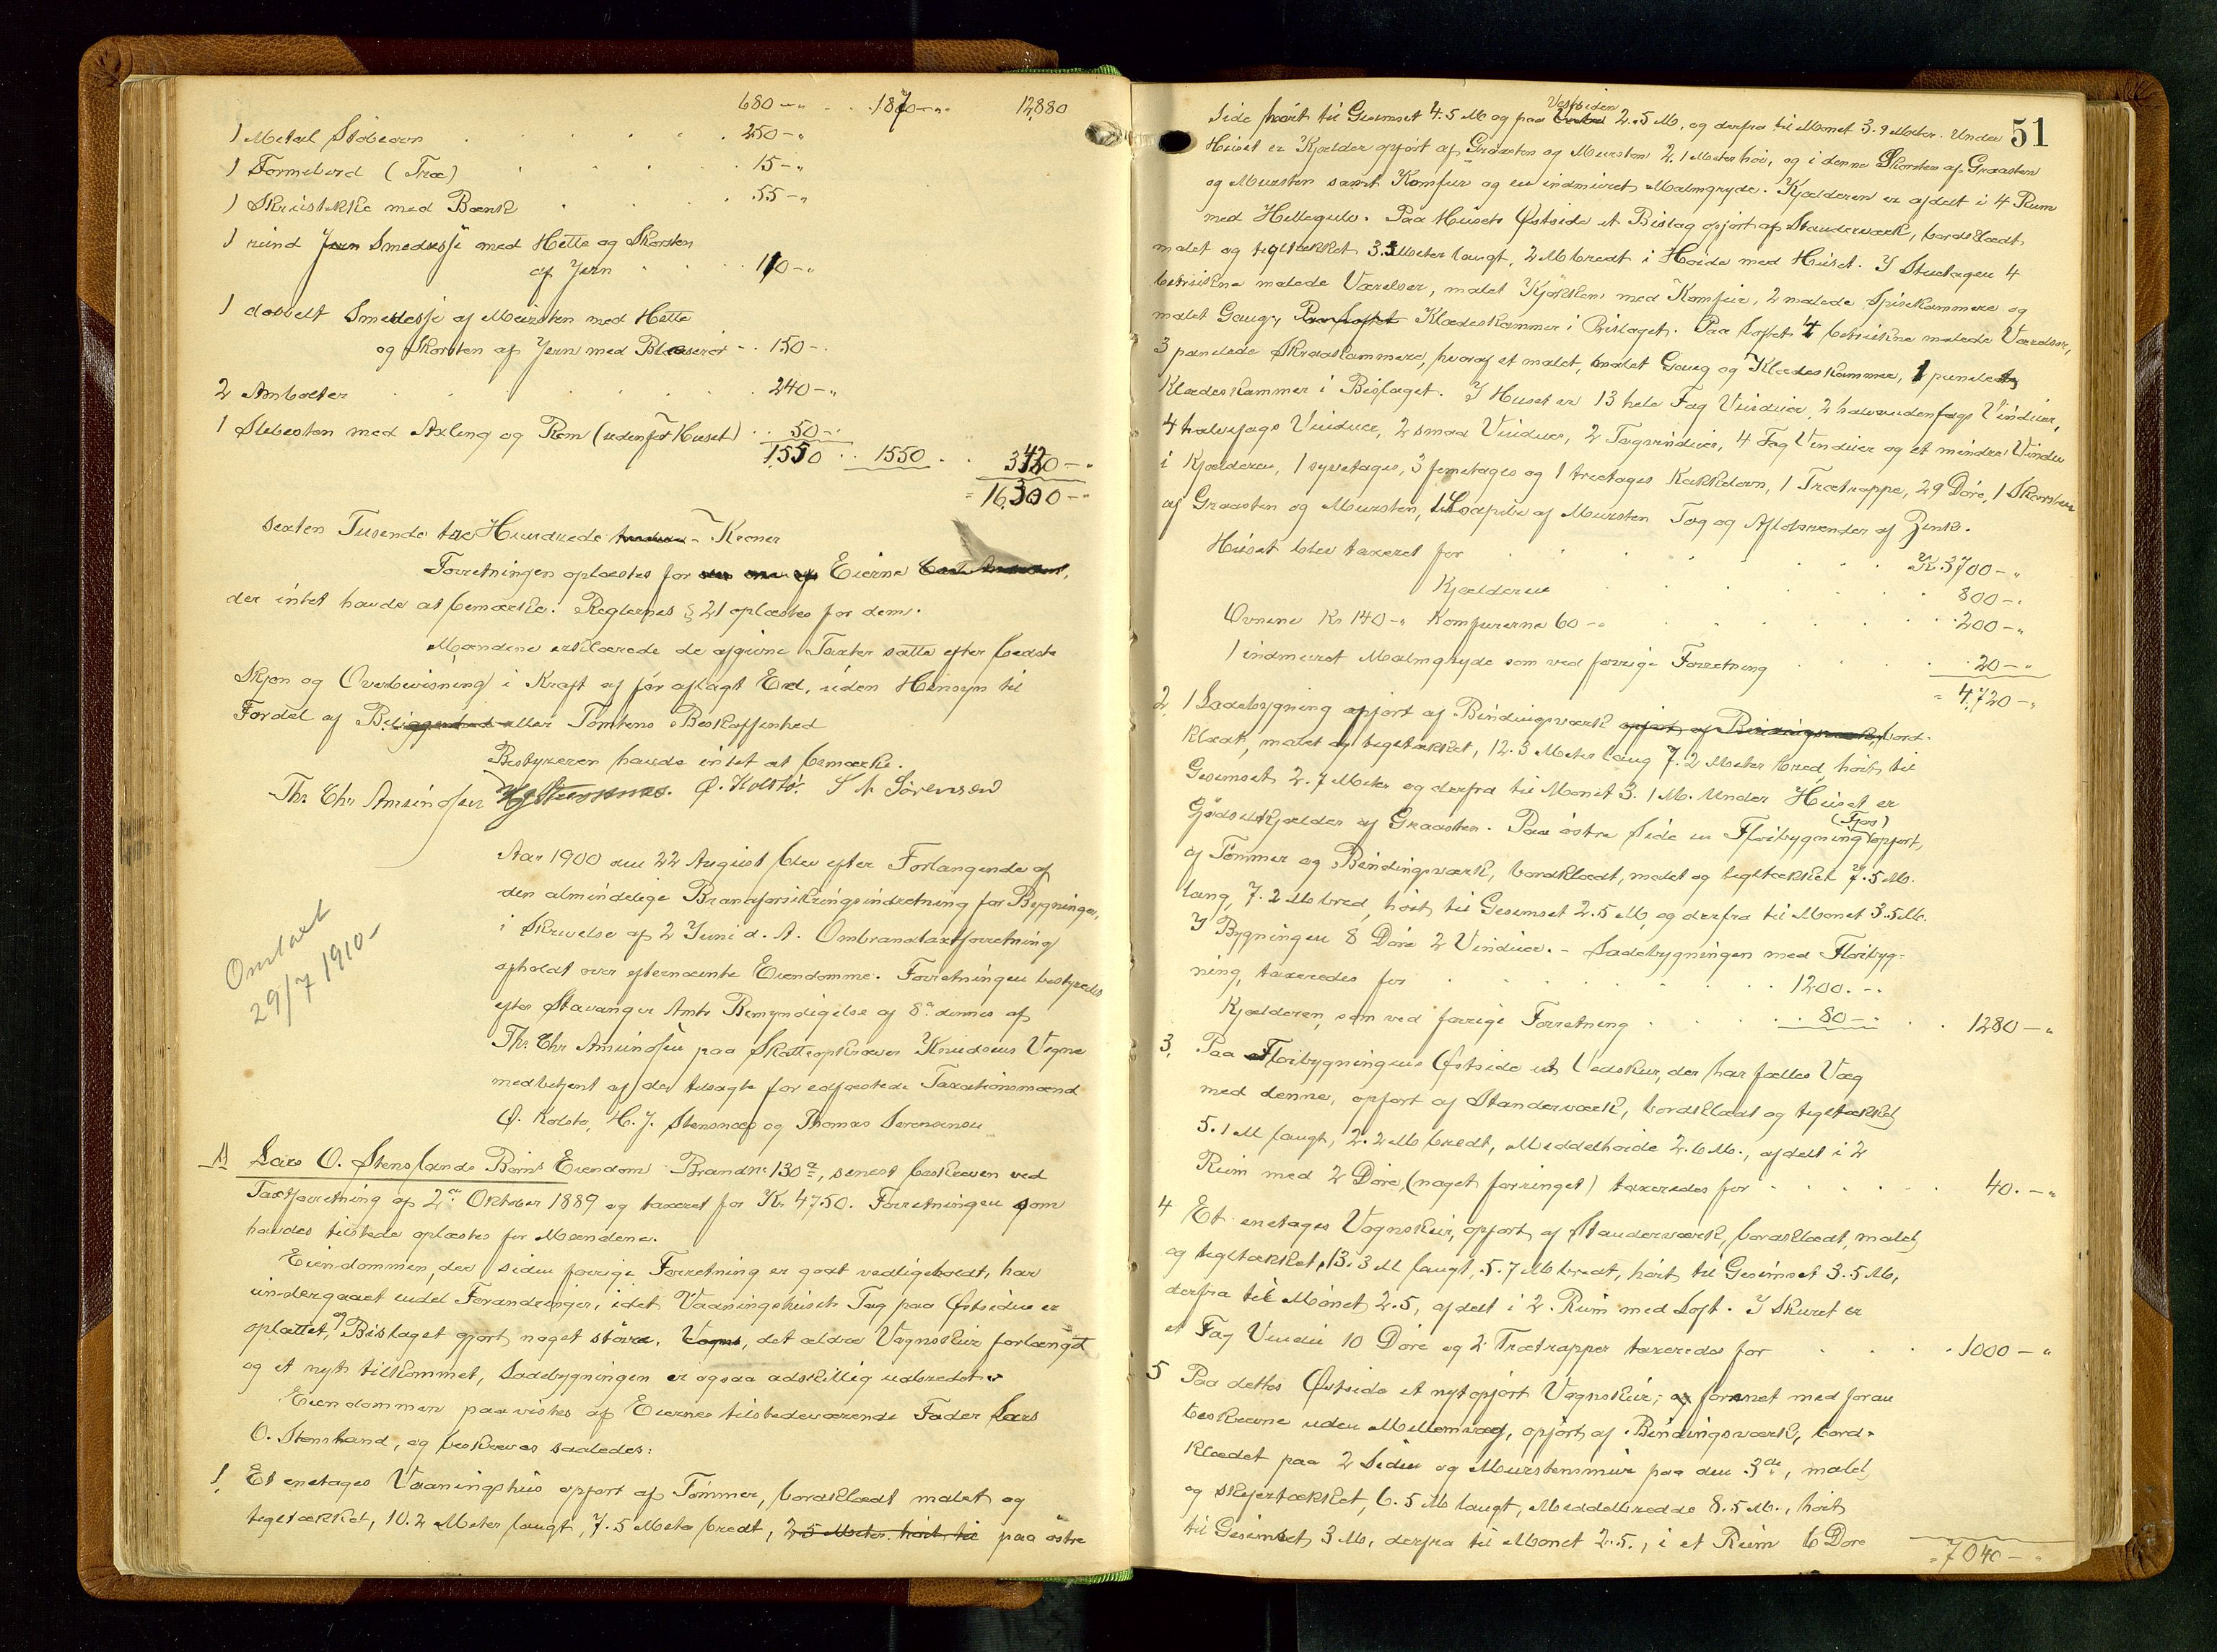 680 - " . . 1870 - " 12,880
1 Metal Støbeovn . . . . 250 - "
1 Formebord (Træ) . . . . 15 - "
1 Skruestikke med Bænk . . . . 55 - "
1 rund Jern Smedessje med Hette og Skorsten
af Jern . . . 110 - "
1 dobbelt Smedessje af Mursten med Hette
og Skorsten af Jern med Blæserør - . 150 - .
2 Ambolter . . . . . . 240 - "
1 Slibesten med Axling og Rem (udenfor Huset) . . 50 - "
1550 . . 1550 . . 3420 - "
= 16,300 - "
Sexten Tusende tre Hundrede - Kroner
Forretningen oplæstes for Eierne
der intet havde at bemærke. Reglernes § 21 oplæstes for dem.
Mændene erklærede de afgivne Taxter satte efter bedste
Skjøn og Overbevisning i Kraft af før aflagt Ed, uden Hensyn til
Fordel af Beliggenhed eller Tomtens Beskaffenhed
Bestyreren havde intet at bemærke.
Ths Chr Amundsen HJ Stensnæs. Ø. Kolstø. S N Sörensen
Aar 1900 den 22 August blev efter Forlangende af
den almindelige Brandforsikringsindretning for Bygninger,
i Skrivelse af 2 Juni d. A. Ombrandtaxtforretning
afholdt over efternævnte Eiendomme. Forretningen bestyredes
efter Stavanger Amts Bemyndigelse af 8de dennes af
Ths Chr Amundsen paa Skatteopkræver Knudsens Vegne
medbetjent af de tilsagte før edfæstede Taxationsmænd
Ø. Kolstø, H. J. Stensnæs og Thomas Sørensen
Omtaxt
29/7 1910 -
1) Lars O. Stenslands Børns Eiendom Brandnr. 130 a, senest beskreven ved
Taxtforretning af 2den Oktober 1889 og taxeret for Kr. 4750. Forretningen som
havdes tilstede oplæstes for Mændene.
Eiendommen, der siden forrige Forretning er godt vedligeholdt, har
undergaaet endel Forandringer, idet Vaaningshusets Tag paa Østsiden er
opløttet, og Bislaget gjort noget større. Vogns, det ældre Vognskur forlænget
og et nyt tilkommet, Ladebygningen er ogsaa adskillig udbredet.
Eiendommen paavistes af Eiernes tilstedeværende Fader Lars
O. Stensland, og beskreves saaledes:
1. Et enetages Vaaningshus opført af Tømmer, bordklædt malet og
tegltækket, 10.2 Meter langt, 7.5 Meter bredt, 2.5 Meter høit til paa østre
51
Side høit til Gesimset 4.5 M og paa Vestsiden 2.5 M, og derfra til Mønet 3.9 Meter. Under
Huset er Kjælder opført af Graasten og Mursten 2.1 Meter høi, og i denne Skorsten af Graasten
og Mursten samt Komfur og en indmuret Malmgryde. Kjælderen er afdelt i 4 Rum
med Hellegulv. Paa Husets Østside et Bislag opført af Standerværk, bordklædt
malet og tegltækket 3.3 Meter langt, 2 M bredt i Høide med Huset. I Stuetagen 4
betrukne malede Værelser, malet Kjøkken med Komfur, 2 malede Spisekammere og
malet Gang, Paa Loftet Klædeskammer i Bislaget. Paa Loftet 4 betrukne malede Værelser,
3 panelede Skraakammere, hvoraf et malet, malet Gang og Klædeskammer, 1 panelet
Klædeskammer i Bislaget. I Huset er 13 hele Fag Vinduer, 2 halvandenfags Vinduer,
4 halvfags Vinduer, 2 smaa Vinduer, 2 Tagvinduer, 4 Fag Vinduer og et mindre Vindu
i Kjælderen, 1 syvetages, 3 femetages og 1 treetages Kakkelovn, 1 Trætrappe, 29 Døre, 1 Skorsten
af Graasten og Mursten, 1 Løspibe af Mursten Tag og Afløbsrender af Zink.
Huset blev taxeret for . . . . . Kr. 3700 - "
Kjælderen . . . . . 800 - "
Ovnene Kr 140 - " Komfurerne 60 - " . . . . 200 - "
1 indmuret Malmgryde som ved forrige Forretning . . . . 20 - "
= 4,720 - "
2. 1 Ladebygning opført af Bindingsværk opført af Bindingsværk, bord-
klædt, malet og tegltækket, 12.3 Meter lang 7.2 Meter bred, høit til
Gesimset 2.7 Meter og derfra til Mønet 3.1 M. Under Huset er
Gjødselkjælder af Graasten. Paa østre Side en Fløibygning (Fjøs) opført,
af Tømmer og Bindingsværk, bordklædt, malet og tegltækket 7.5 M.
lang, 7.2 M bred, høit til Gesimset 2.5 M, og derfra til Mønet 3.5 M.
I Bygningen 8 Døre 2 Vinduer. - Ladebygningen med Fløibyg-
ning, taxeredes for . . . . . . 1200. - "
Kjælderen, som ved forrige Forretning . . . . 80 - " . . 1280 - "
3. Paa Fløibygningens Østside et Vedskur, der har fælles Væg
med denne, opført af Standerværk, bordklædt og tegltækket
5.1 M langt, 2.2 M bredt, Middelhøide 2.6 M., afdelt i 2
Rum med 2 Døre, (noget forringet) taxeredes for . . . . . 40. - "
4 Et enetages Vognskur, opført af Standerværk, bordklædt, malet
og tegltækket, 13.3 M langt, 5.7 M bredt, høit til Gesimset 3.5 M,
derfra til Mønet 2.5, afdelt i 2 Rum med Loft. I Skuret er
et Fag Vindu 10 Døre og 2 Trætrapper taxeredes for . . . . 1000 - "
5 Paa dettes Østside et nyt opført Vognskur, forenet med foran
beskrevne uden Mellemvæg, opført af Bindingsværk, bord-
klædet paa 2 Sider og Murstensmur paa den 3de, malet
og skifertækket, 6.5 M langt, Middelbredde 8.5 M., høit
til Gesimset 3 M, derfra til Mønet 2.5., i et Rum 6 Døre
= 7040 - "